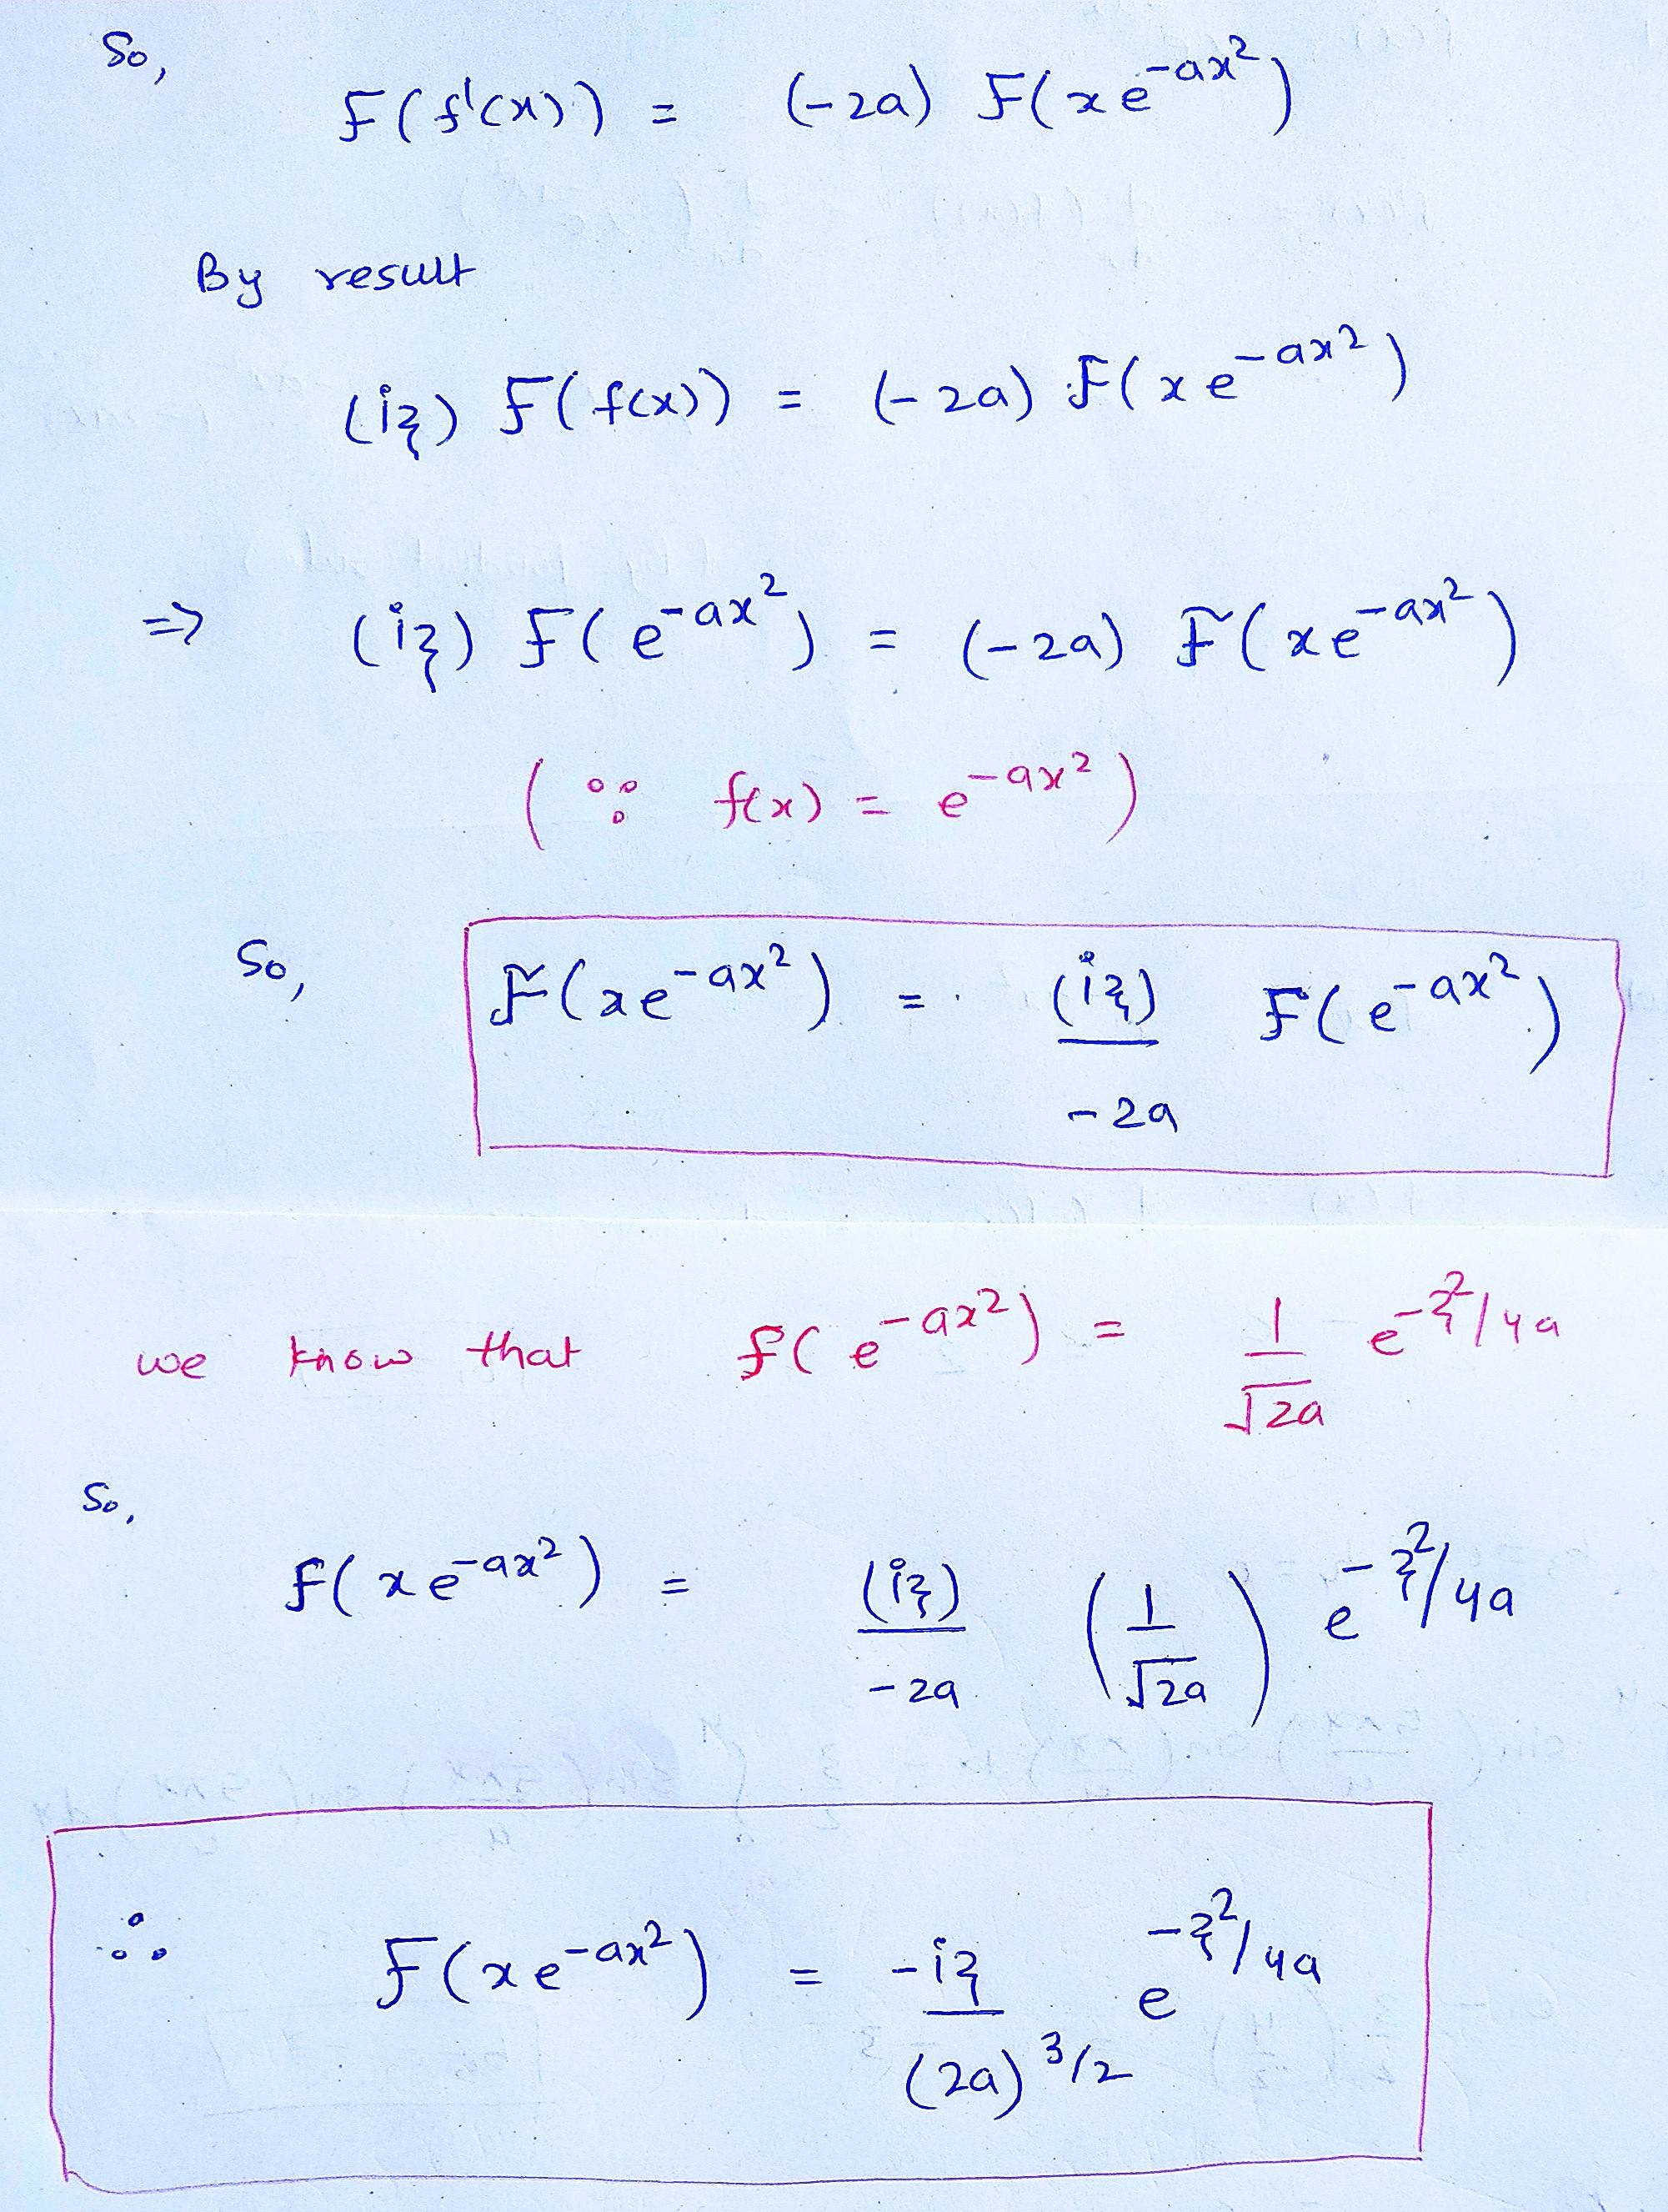 So,
F(f'(x)) = (-2a) F(xe^{-ax^2})
By result
(iξ) F(f(x)) = (-2a) F(xe^{-ax^2})
⇒ (iξ) F(e^{-ax^2}) = (-2a) F(xe^{-ax^2})
(∵ f(x) = e^{-ax^2})
So, F(xe^{-ax^2}) = (iξ)/-2a F(e^{-ax^2})
we know that F(e^{-ax^2}) = 1/√2a e^{-ξ^2/4a}
So,
F(xe^{-ax^2}) = (iξ)/-2a (1/√2a) e^{-ξ^2/4a}
∴ F(xe^{-ax^2}) = -iξ/(2a)^{3/2} e^{-ξ^2/4a}